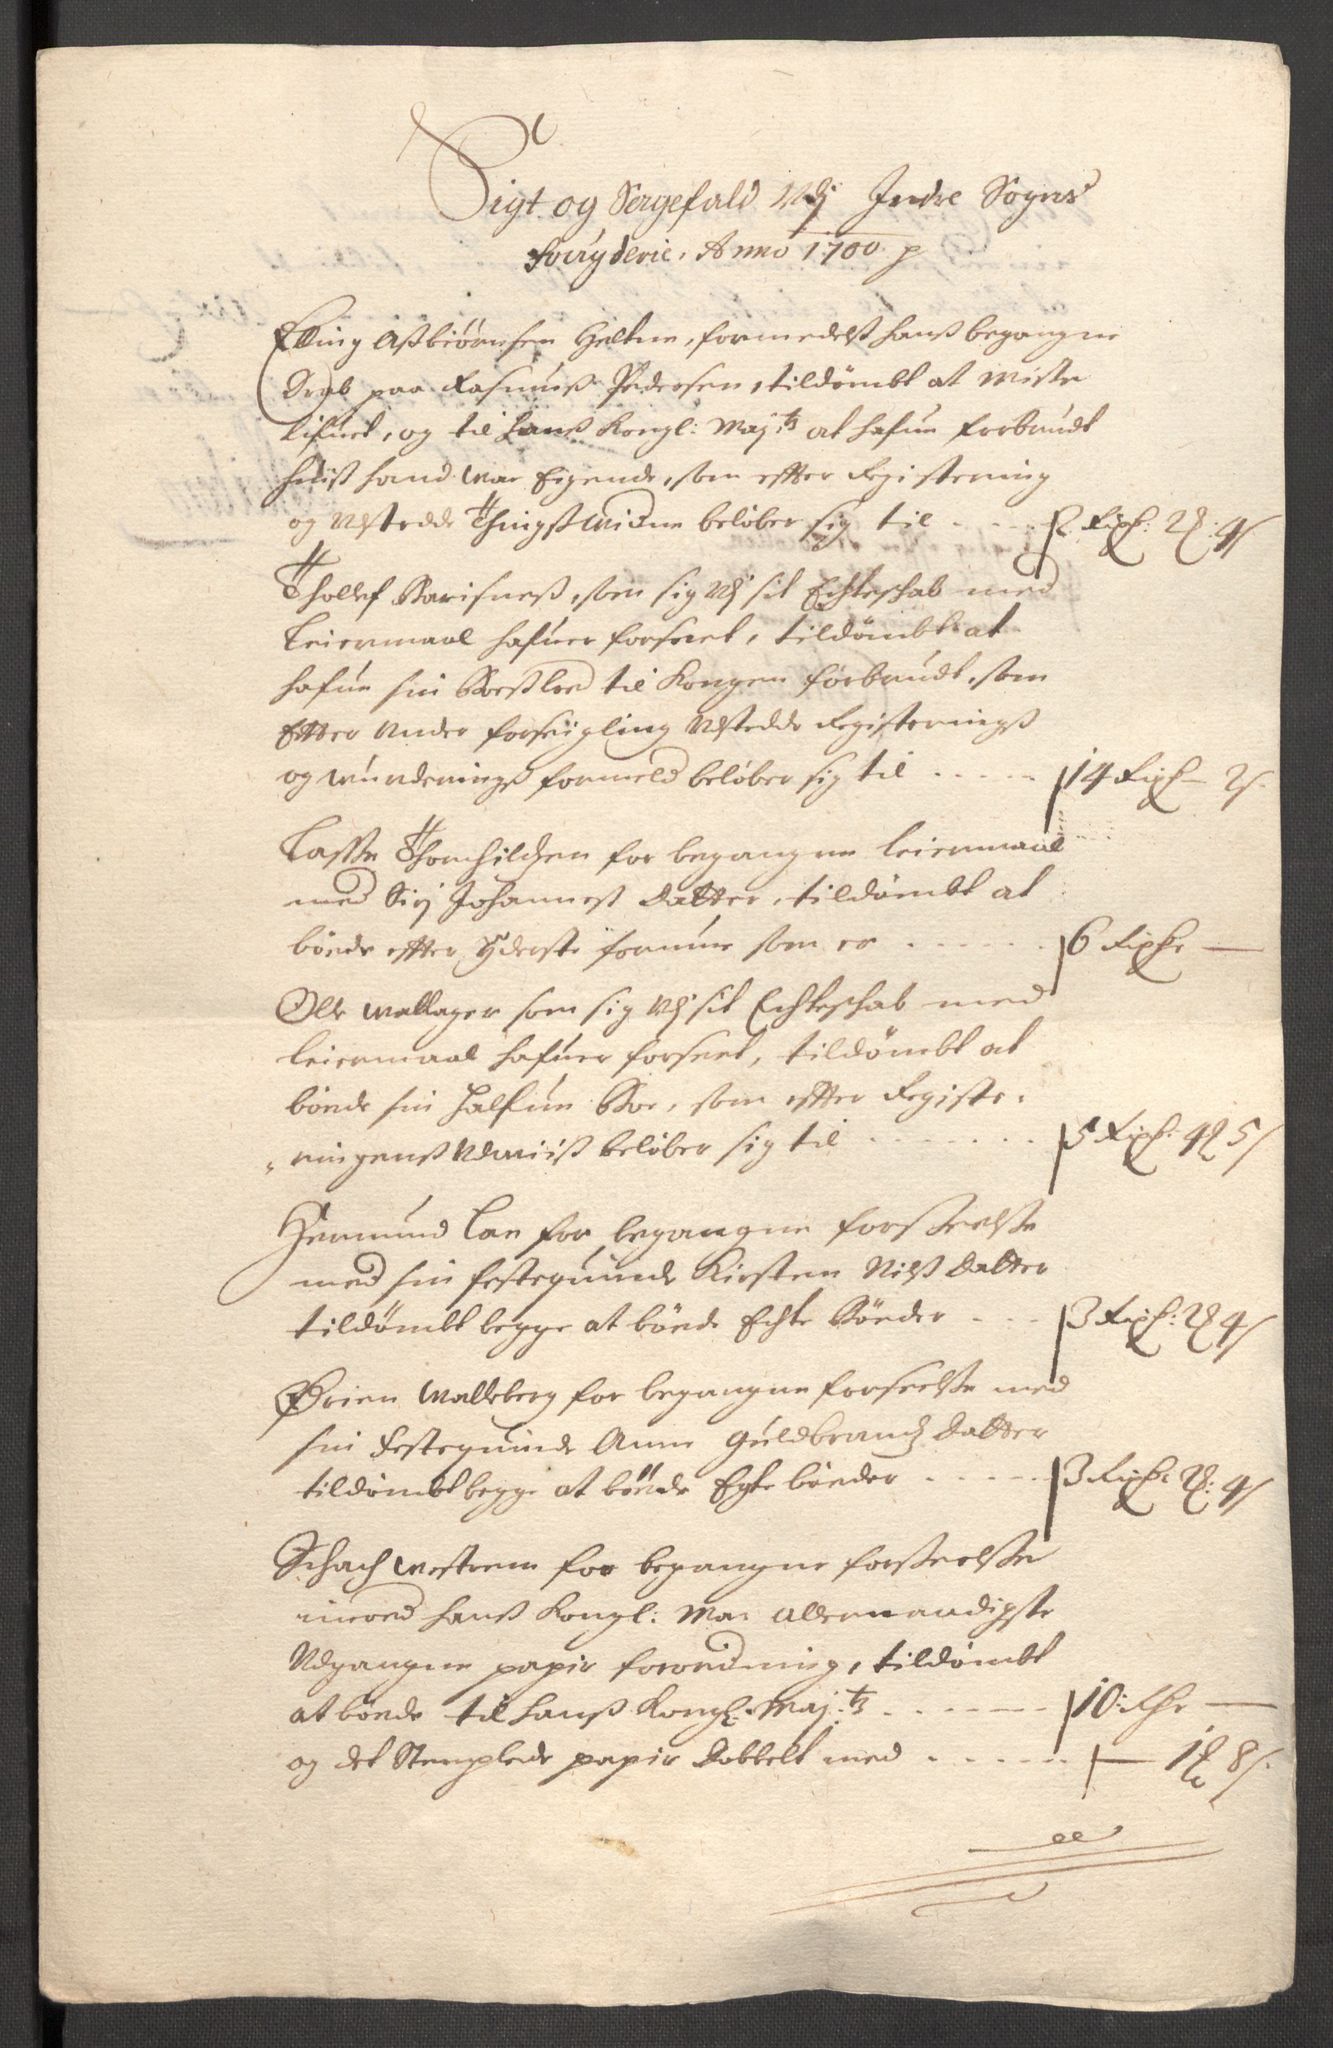 Sigt og Sagefald Udj Indre Sogns
fougderie, Anno 1700 p
Elling Aßbiørnsen Heltne, formedelst hanß begangne
Drab paa Rasmuß Pedersen, tildømbt at miste
lifuet, og til hanß Kongl: Maj:tz at hafue forbrudt
huiß hand war Eigende, som effter Registering
og Udstedde Thingßwidne beløber sig til - - - 2 Rixd: 2 ß: 4 s
Tholef som sig Udj sit Echteschab med
Leiermaal hafuer forseet, tildømbt at
hafue sin Boeßlod til Kongen forbrudt, som
Effter Under forseigling Udstedde Registerings
og wurderingß formeld beløber sig til - - - 14 Rixd 2 s
Lasse Thorchildsen for begangne leiermaal
med Sirj Johannes Datter, tildømbt at
bøede effter Yderste formue som er - - - 6 Rixdr
Olle wallager som sig Udj sit Echteschab med
leiermaal hafuer forseet, tildømbt at
bøede sin halfue Boe, som effter Registe-
ringens Udwiiß beløber sig til - - - 5 Rixd: 4 ß 5 s
Hermund Lan for begangne forseelße
med sin festequinde Kirsten Nilß Datter
tildømbt begge at bøede Echte Bøeder - - - 3 Rixd: 2 ß 4 s
Ørien Walleberg for begangne forseelße med
sin festequinde Anne Guldbrandz Datter
tildømbt begge at bøede Egte bøeder - - - 3 Rixd: 2 ß: 4 s
Schach for begangne forseelße
imod hanß Kongl: May: allernaadigste
Udgangne papir forordning, tildømbt
at bøede til hanß Kongl: Maj:tz - - - 10: Rdr
og det Stemplede papir dobbelt med - - - 1 ß 8 s